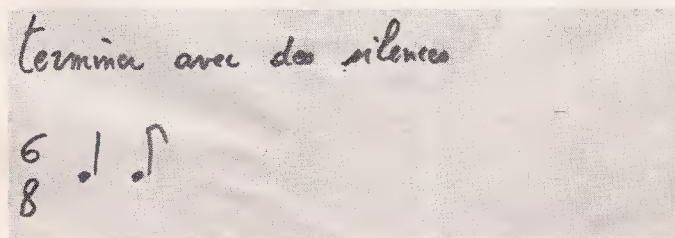 terminer avec des silences
6
8